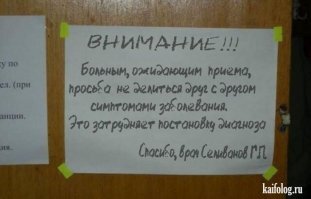 ку по
ел. (при
анции.
ия.
ВНИМАНИЕ!!!
Больным, ожидающим приема,
просьба не делиться друг с другом
симптомами заболевания.
Это затрудняет постановку диагноза
Спасибо, врач Селиванов Г.П.
kaifolog.ru